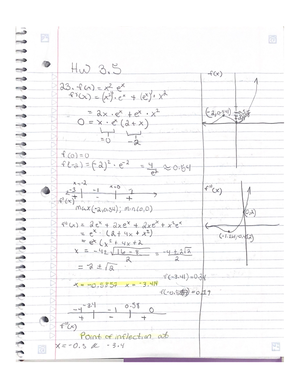 HW 3.5
23. f(x) = x² eˣ
f'(x) = (x²)' · eˣ + (eˣ)' · x²
= 2x · eˣ + eˣ · x²
0 = x · eˣ (2 + x)
=0 -2
f(0) = 0
f(-2) = (-2)² · e⁻² = 4/e² ≈ 0.54
x=-2 x=0
f'(x) + - +
max(-2, 0.54); min(0,0)
f''(x) = 2eˣ + 2xeˣ + 2xeˣ + x²eˣ
= eˣ · (2 + 4x + x²)
= eˣ (x² + 4x + 2
= -2 ± √2
x = -0.5857 x = -3.41
-4 -3.4 0.58 0
+ - +
f''(x)
Point of inflection at
x = -0.5 & -3.4
f(x)
(-2, 0.54)
f''(x)
f(-3.41) = 0.38